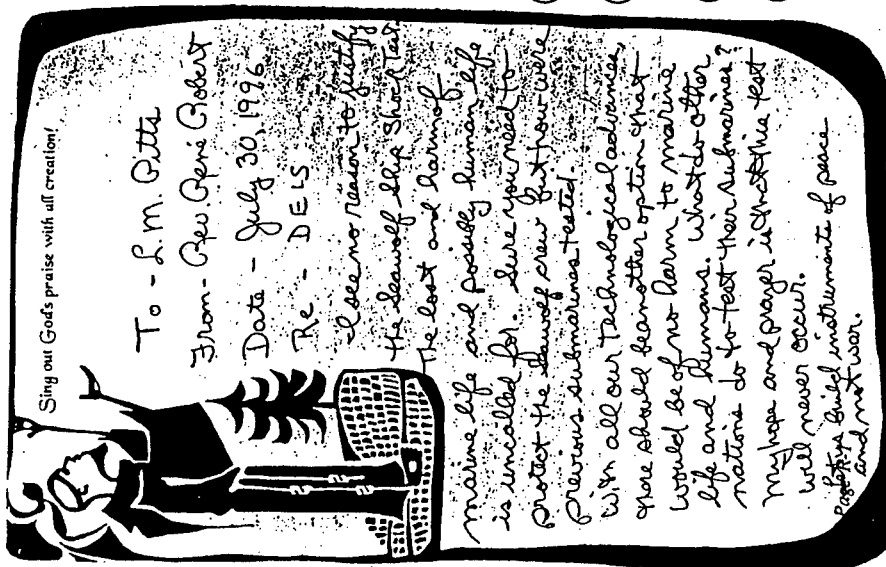 Sing out God's praise with all creation!
To - L.M. Pitts
From - Rev René Robert
Date - July 30, 1996
Re - DELS
I see no reason to justify
the Seawolf Ship Shock Test.
The lost and harm of
marine life and possibly human life
is uncalled for. Sure you need to
protect the Seawolf crew but how were
previous submarines tested.
With all our technological advances,
there should be another option that
would be of no harm to marine
life and humans. What do other
nations do to test their submarines?
My hope and prayer is that this test
will never occur.
Let us build instruments of peace
and not war.